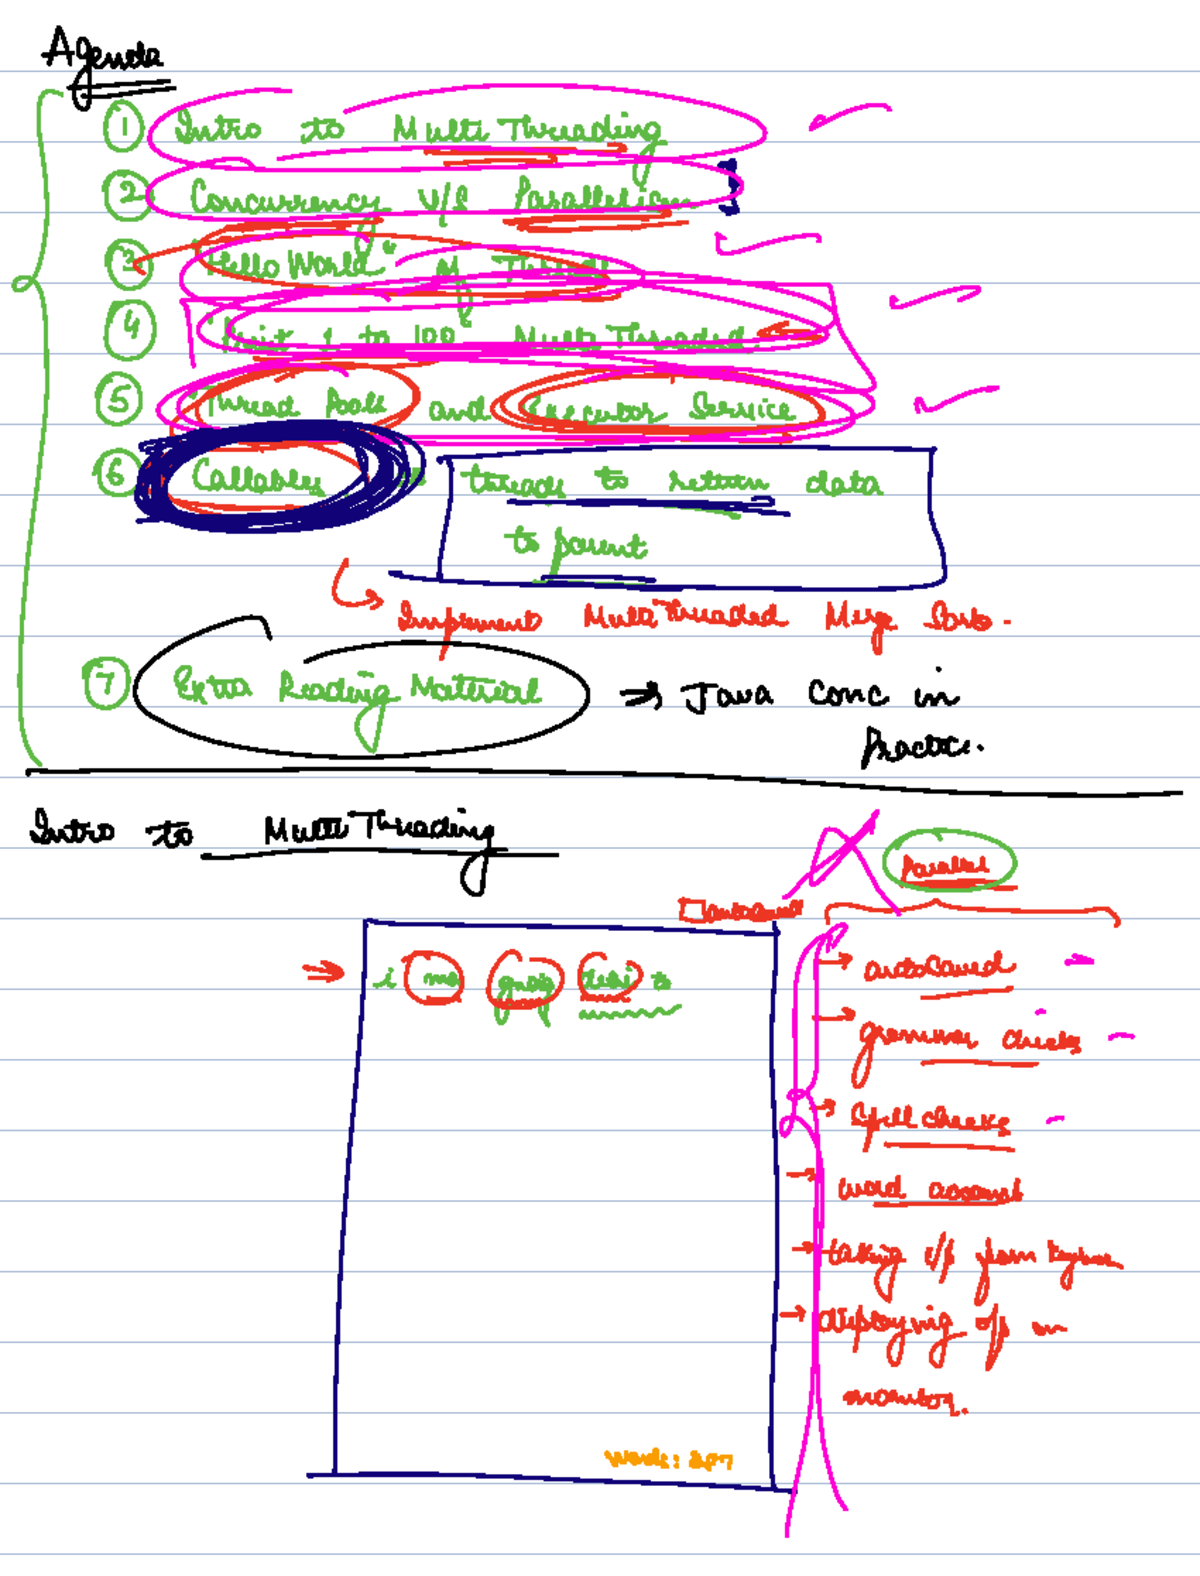 Agenda
1 Intro to Multi Threading
2 Concurrency v/s Parallelism
3 "Hello World" of Threads
4 Print 1 to 100 Multi Threaded
5 Thread Pools and Executor Service
6 Callables : threads to return data
to parent
Implement Multi Threaded Merge Sort.
7 Extra Reading Material → Java Conc in
Practice.
Intro to Multi Threading
Parallel
autosaved
i to
→ autosaved
→ grammar checks
→ Spell checks
→ word
→ taking i/p from
→ displaying o/p on
monitor.
words: